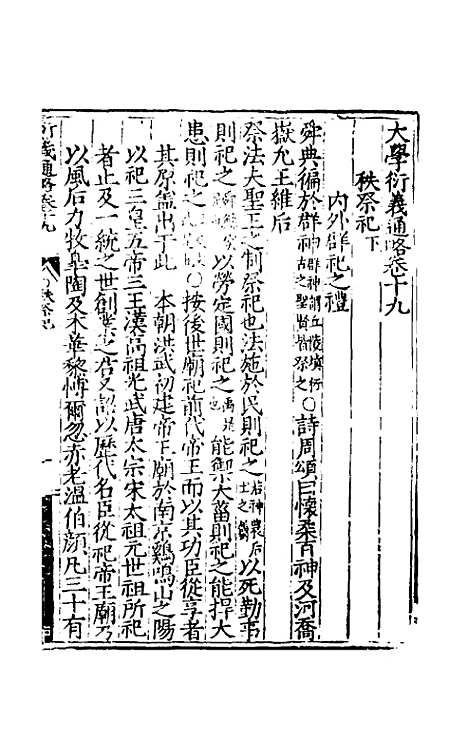 大學衍義通略卷十九
秩祭祀下
內外群祀之禮
舜典徧於群神群神謂丘陵墳衍古之聖賢皆祭之○詩周頌曰懷柔百神及河喬
嶽允王維后
祭法夫聖王之制祭祀也法施於民則祀之若神農后土之類以死勤事
則祀之以勞定國則祀之禹是也能禦大菑則祀之能捍大
患則祀之○按後世廟祀前代帝王而以其功臣從享者
其原蓋出于此 本朝洪武初建帝王廟於南京雞鳴山之陽
以祀三皇五帝三王漢高祖光武唐太宗宋太祖元世祖所祀
者止及一統之世創業之君又詔以歷代名臣從祀帝王廟乃
以風后力牧皐陶及木華黎博爾忽赤老溫伯顏凡三十有
衍義通略卷十九
秩祭祀
一